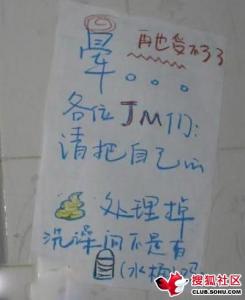 再也受不了了
晕。。。
各位JM们:
请把自己的
处理掉
洗澡间不是有
(水桶)吗
搜狐社区
CLUB.SOHU.COM